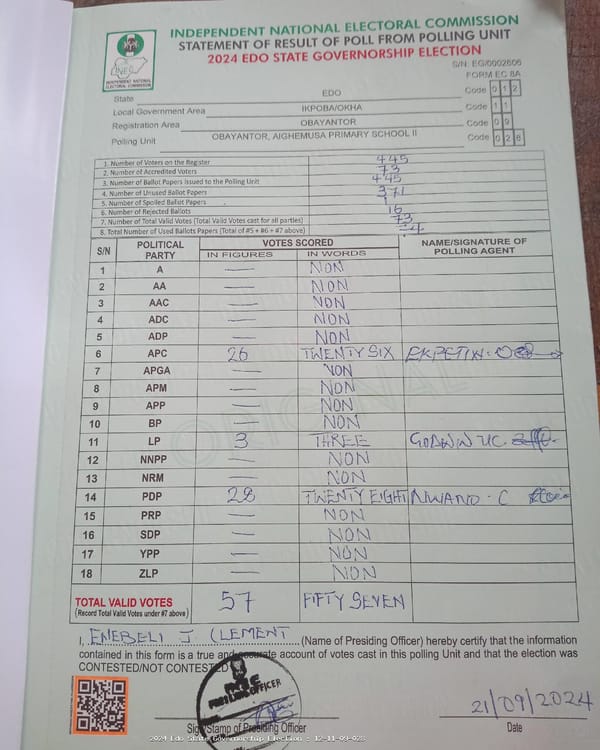 INDEPENDENT NATIONAL ELECTORAL COMMISSION
STATEMENT OF RESULT OF POLL FROM POLLING UNIT
2024 EDO STATE GOVERNORSHIP ELECTION
S/N: EG/0002606
FORM EC 8A
INEC
INDEPENDENT NATIONAL ELECTORAL COMMISSION
State EDO Code 0 1 2
Local Government Area IKPOBA/OKHA Code 1 1
Registration Area OBAYANTOR Code 0 9
Polling Unit OBAYANTOR, AIGHEMUSA PRIMARY SCHOOL II Code 0 2 8
1. Number of Voters on the Register 445
2. Number of Accredited Voters 73
3. Number of Ballot Papers Issued to the Polling Unit 445
4. Number of Unused Ballot Papers 371
5. Number of Spoiled Ballot Papers 1
6. Number of Rejected Ballots 16
7. Number of Total Valid Votes (Total Valid Votes cast for all parties) 73
8. Total Number of Used Ballots Papers (Total of #5 + #6 + #7 above)
S/N POLITICAL PARTY VOTES SCORED NAME/SIGNATURE OF POLLING AGENT
IN FIGURES IN WORDS
1 A — NON
2 AA — NON
3 AAC — NON
4 ADC — NON
5 ADP — NON
6 APC 26 TWENTY SIX
7 APGA — NON
8 APM — NON
9 APP — NON
10 BP — NON
11 LP 3 THREE GODWIN UC.
12 NNPP — NON
13 NRM — NON
14 PDP 28 TWENTY EIGHT NWAND. C
15 PRP — NON
16 SDP — NON
17 YPP — NON
18 ZLP — NON
TOTAL VALID VOTES 57 FIFTY SEVEN
(Record Total Valid Votes under #7 above)
I, ENEBELI J CLEMENT (Name of Presiding Officer) hereby certify that the information
contained in this form is a true and accurate account of votes cast in this polling Unit and that the election was
CONTESTED/NOT CONTESTED
PRESIDING OFFICER
21/09/2024
Sign/Stamp of Presiding Officer Date
2024 Edo State Governorship Election - 12-11-09-028
ORIGINAL